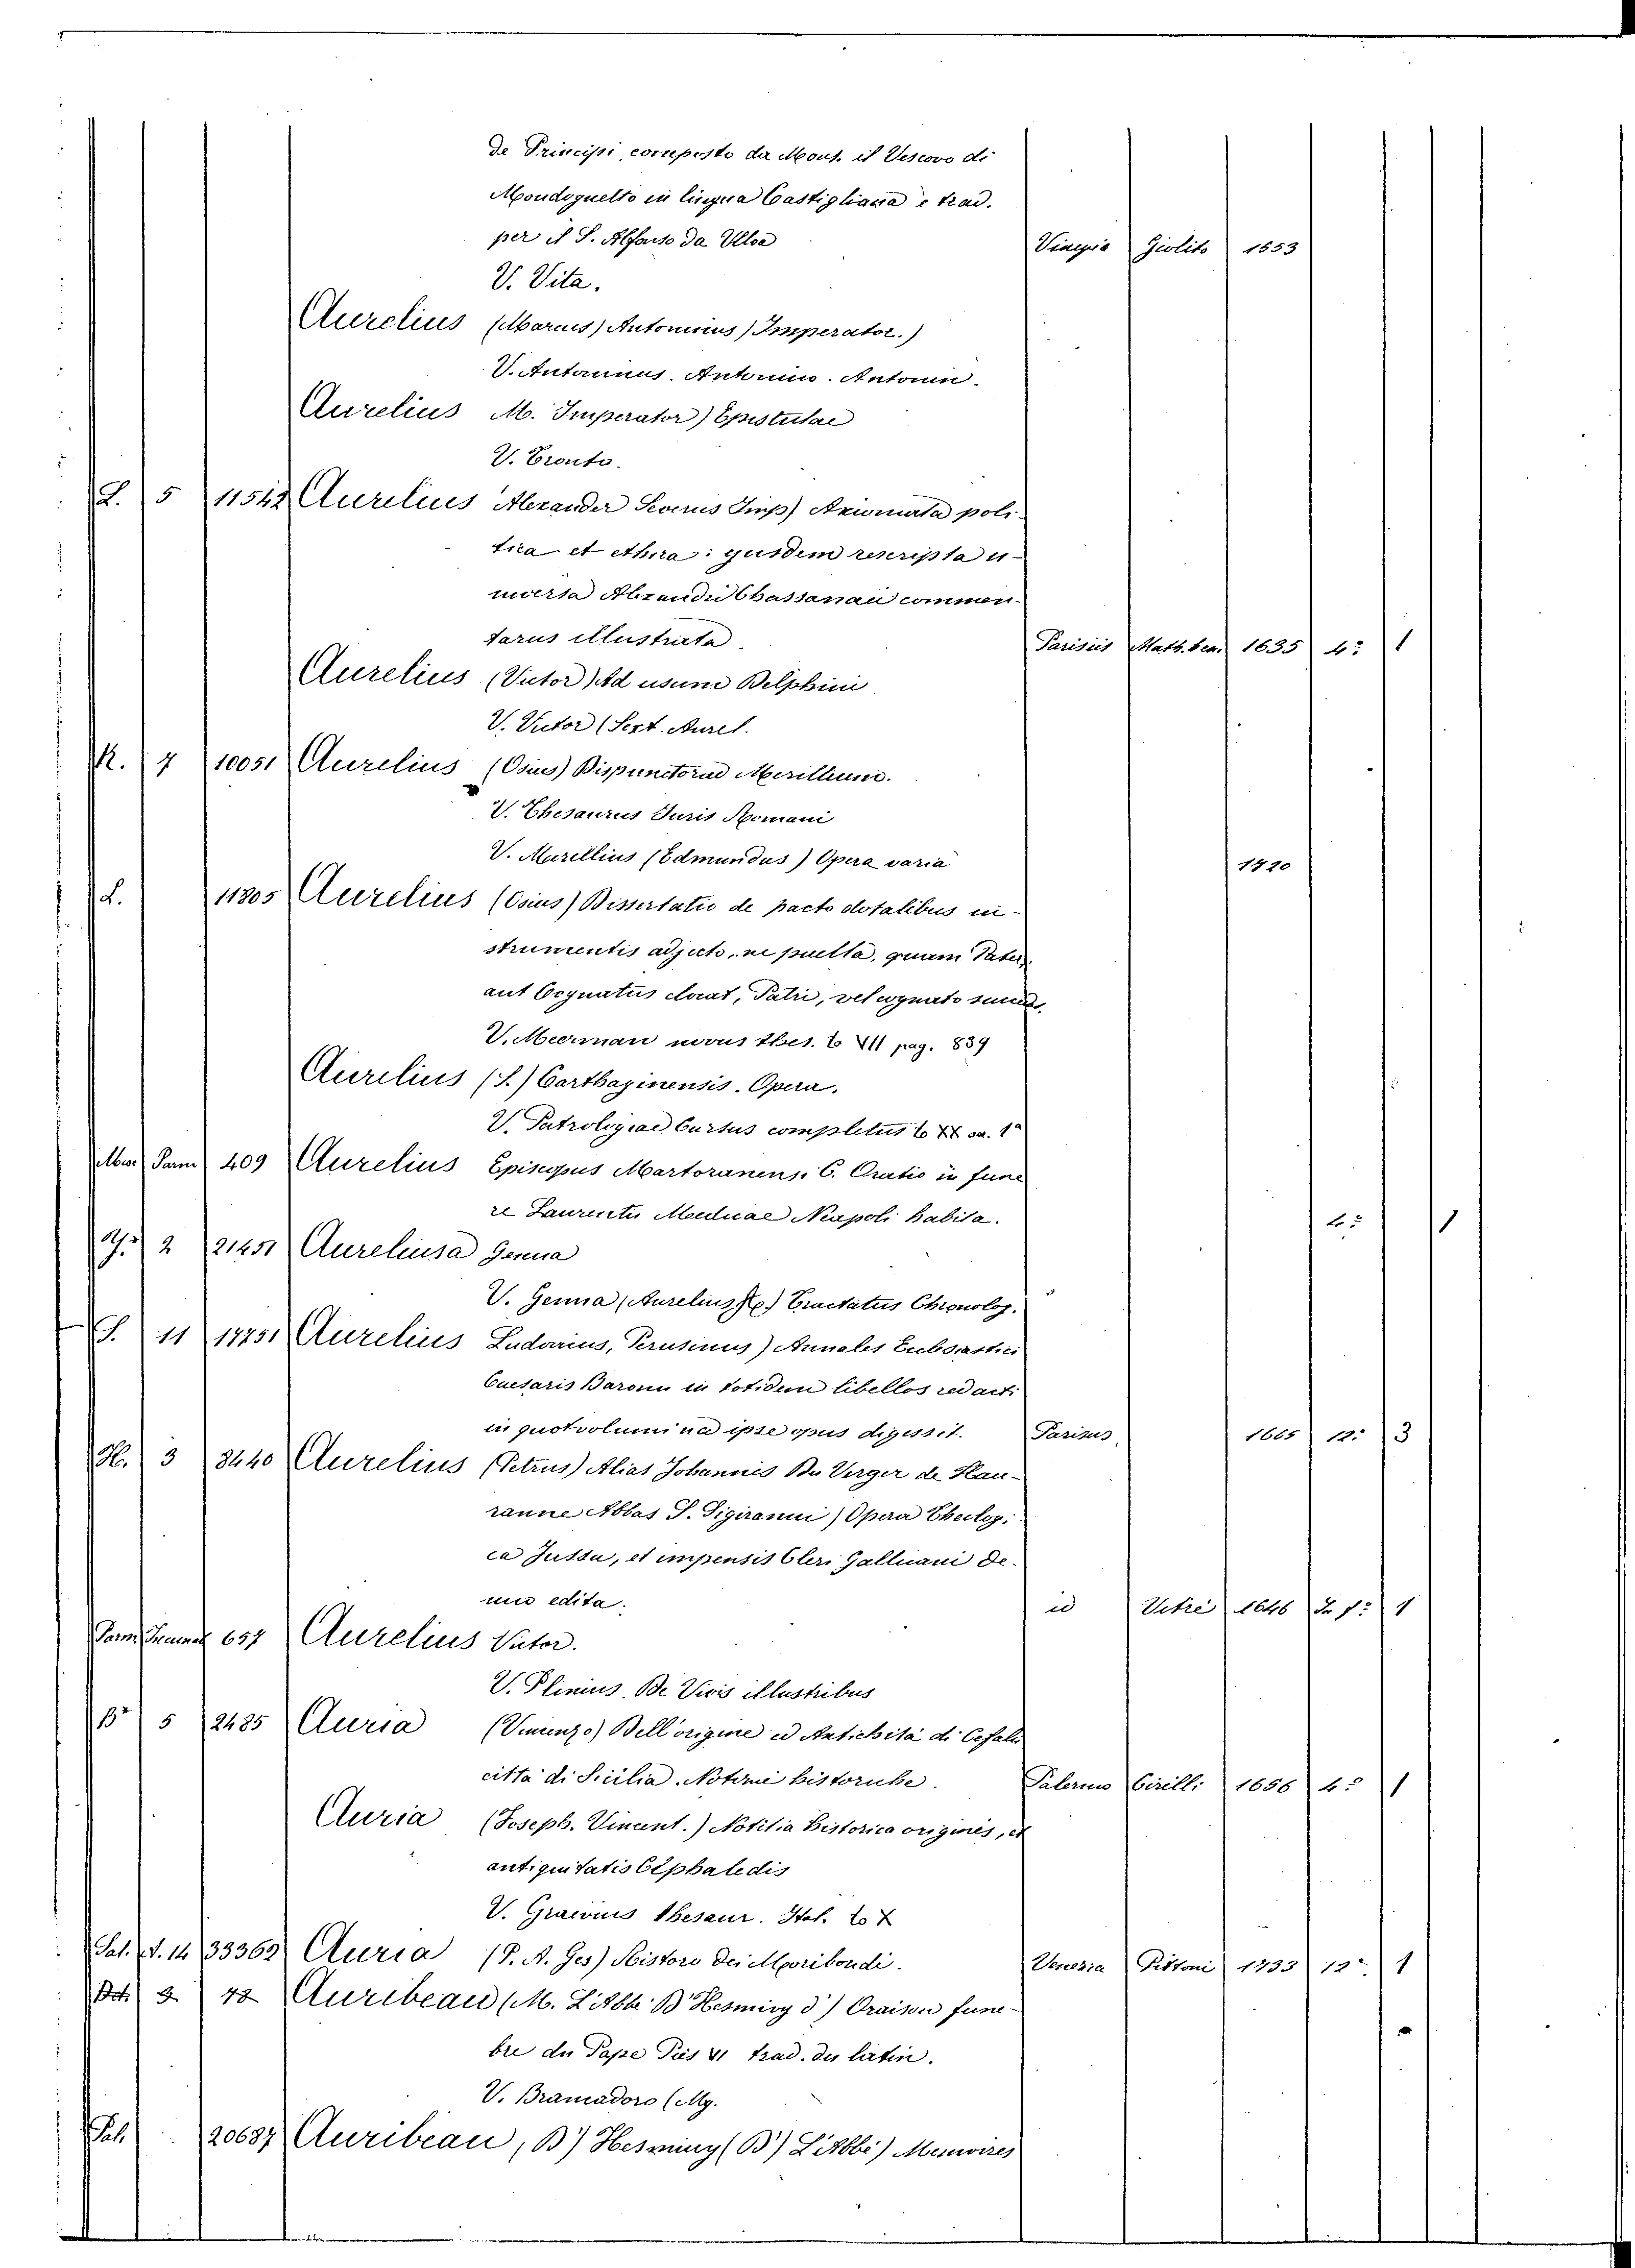 de Principi, composto da Mons. il Vescovo di
Mondoguetto in lingua Castigliana e trad.
per il S. Alfonso da Ulloa Vinegia Giolito 1553
V. Vita.
Aurelius (Marcus) Antoninus) Imperator.)
V. Antoninus. Antonino. Antonin.
Aurelius M. Imperator) Epistulae
V. Fronto.
L. 5 11542 Aurelius Alexander Severus Imp) Axiomata poli-
tica et ethica: ejusdem rescripta u-
niversa Alexandri Chassanaei commen-
tariis illustrata. Parisiis Math. 1635 4º 1
Aurelius (Victor) Ad usum Delphini
V. Victor (Sext. Aurel.
R. 7 10051 Aurelius (Osius) Dispunctor ad Merillium.
V. Thesaurus Juris Romani
V. Merillius (Edmundus) Opera varia 1720
L. 11805 Aurelius (Osius) Dissertatio de pacto dotalibus in-
strumentis adjecto, ne puella, quam Pater
aut Cognatus dotat, Patri, vel cognato
V. Meerman novus thes. to VII pag. 839
Aurelius (S.) Carthaginensis. Opera.
V. Patrologiae Cursus completus to XX 1ª
Parm 409 Aurelius Episcopus Martoranens. C. Oratio in fune
re Laurentii Medicae Neapoli habita. 4º 1
2 21451 Aureliusa Genua
V. Genua (Aurelius Tractatus Chronolog.
S. 11 17751 Aurelius Ludovicus, Perusinus) Annales Ecclesiastici
Caesaris Baronii in totidem libellos redacti
in quot volumina ipse opus digessit. Parisiis 1665 12º 3
H. 3 8440 Aurelius (Petrus) Alias Johannes Du Verger de Hau-
ranne Abbas S. Sigiranni) Opera Theologi-
ca Jussu, et impensis Cleri Gallicani de-
nuo edita. id Vitré 1646 In fº 1
Parm 657 Aurelius Victor.
V. Plinius. De Viris illustribus
Bª 5 2485 Auria (Vincenzo) Dell'origine ed Antichità di Cefalù
città di Sicilia. Notizie historiche. Palermo Cirilli 1656 4º 1
Auria (Joseph. Vincent.) Notitia historica originis, et
antiquitatis Cephaledis
V. Graevius thesaur. Ital. to X
Sal. 14 33362 Auria (P. A. Ges) Ristoro dei Moribondi. Venezia Pittoni 1733 12º 1
Auribeau (M. L'Abbé D'Hesmivy d') Oraison fune-
bre du Pape Pies VI trad. du latin.
V. Bramadoro (Mg.
Sal. 20687 Auribeau, D') Hesmivy (D') L'Abbé) Memoires